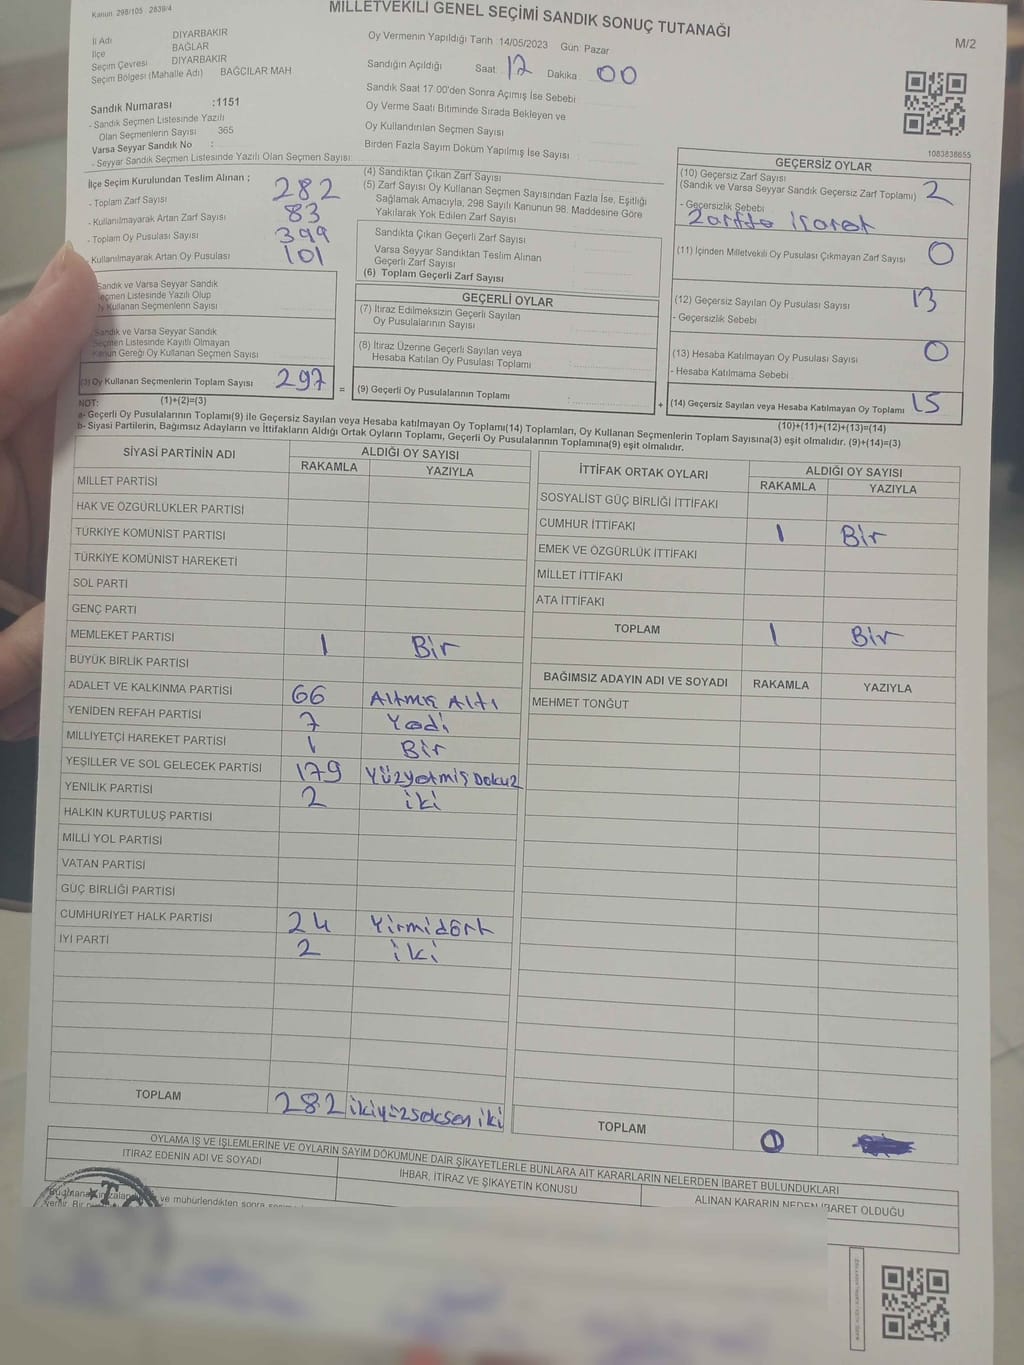 Kanun: 298/105 - 2839/4
MİLLETVEKİLİ GENEL SEÇİMİ SANDIK SONUÇ TUTANAĞI
M/2
İl Adı DİYARBAKIR
İlçe BAĞLAR
Seçim Çevresi DİYARBAKIR
Seçim Bölgesi (Mahalle Adı) BAĞCILAR MAH
Sandık Numarası :1151
- Sandık Seçmen Listesinde Yazılı
Olan Seçmenlerin Sayısı 365
Varsa Seyyar Sandık No :
- Seyyar Sandık Seçmen Listesinde Yazılı Olan Seçmen Sayısı
Oy Vermenin Yapıldığı Tarih 14/05/2023 Gün: Pazar
Sandığın Açıldığı Saat 17 Dakika 00
Sandık Saat 17:00'den Sonra Açımış İse Sebebi
Oy Verme Saati Bitiminde Sırada Bekleyen ve
Oy Kullandırılan Seçmen Sayısı
Birden Fazla Sayım Döküm Yapılmış İse Sayısı
İlçe Seçim Kurulundan Teslim Alınan ;
- Toplam Zarf Sayısı 282
- Kullanılmayarak Artan Zarf Sayısı 83
- Toplam Oy Pusulası Sayısı 399
- Kullanılmayarak Artan Oy Pusulası 101
Sandık ve Varsa Seyyar Sandık
Seçmen Listesinde Yazılı Olup
Oy Kullanan Seçmenlerin Sayısı
Sandık ve Varsa Seyyar Sandık
Seçmen Listesinde Kayıtlı Olmayan
Kanun Gereği Oy Kullanan Seçmen Sayısı
(3) Oy Kullanan Seçmenlerin Toplam Sayısı 297
(1)+(2)=(3)
(4) Sandıktan Çıkan Zarf Sayısı
(5) Zarf Sayısı Oy Kullanan Seçmen Sayısından Fazla İse, Eşitliği
Sağlamak Amacıyla, 298 Sayılı Kanunun 98. Maddesine Göre
Yakılarak Yok Edilen Zarf Sayısı
Sandıkta Çıkan Geçerli Zarf Sayısı
Varsa Seyyar Sandıktan Teslim Alınan
Geçerli Zarf Sayısı
(6) Toplam Geçerli Zarf Sayısı
GEÇERLİ OYLAR
(7) İtiraz Edilmeksizin Geçerli Sayılan
Oy Pusulalarının Sayısı
(8) İtiraz Üzerine Geçerli Sayılan veya
Hesaba Katılan Oy Pusulası Toplamı
= (9) Geçerli Oy Pusulalarının Toplamı :
1083838655
GEÇERSİZ OYLAR
(10) Geçersiz Zarf Sayısı
(Sandık ve Varsa Seyyar Sandık Geçersiz Zarf Toplamı) 2
- Geçersizlik Sebebi
Zarfta işaret
(11) İçinden Milletvekili Oy Pusulası Çıkmayan Zarf Sayısı 0
(12) Geçersiz Sayılan Oy Pusulası Sayısı 13
- Geçersizlik Sebebi
(13) Hesaba Katılmayan Oy Pusulası Sayısı 0
- Hesaba Katılmama Sebebi
+ (14) Geçersiz Sayılan veya Hesaba Katılmayan Oy Toplamı 15
(10)+(11)+(12)+(13)=(14)
NOT:
a- Geçerli Oy Pusulalarının Toplamı(9) ile Geçersiz Sayılan veya Hesaba katılmayan Oy Toplamı(14) Toplamları, Oy Kullanan Seçmenlerin Toplam Sayısına(3) eşit olmalıdır. (9)+(14)=(3)
b- Siyasi Partilerin, Bağımsız Adayların ve İttifakların Aldığı Ortak Oyların Toplamı, Geçerli Oy Pusulalarının Toplamına(9) eşit olmalıdır.
SİYASİ PARTİNİN ADI ALDIĞI OY SAYISI
RAKAMLA YAZIYLA
MİLLET PARTİSİ
HAK VE ÖZGÜRLÜKLER PARTİSİ
TÜRKİYE KOMÜNİST PARTİSİ
TÜRKİYE KOMÜNİST HAREKETİ
SOL PARTİ
GENÇ PARTİ
MEMLEKET PARTİSİ 1 Bir
BÜYÜK BİRLİK PARTİSİ
ADALET VE KALKINMA PARTİSİ 66 Altmış Altı
YENİDEN REFAH PARTİSİ 7 Yedi
MİLLİYETÇİ HAREKET PARTİSİ 1 Bir
YEŞİLLER VE SOL GELECEK PARTİSİ 179 Yüzyetmiş Dokuz
YENİLİK PARTİSİ 2 iki
HALKIN KURTULUŞ PARTİSİ
MİLLİ YOL PARTİSİ
VATAN PARTİSİ
GÜÇ BİRLİĞİ PARTİSİ
CUMHURİYET HALK PARTİSİ 24 Yirmidört
İYİ PARTİ 2 iki
TOPLAM 282 ikiyüzseksen iki
İTTİFAK ORTAK OYLARI ALDIĞI OY SAYISI
RAKAMLA YAZIYLA
SOSYALİST GÜÇ BİRLİĞİ İTTİFAKI
CUMHUR İTTİFAKI 1 Bir
EMEK VE ÖZGÜRLÜK İTTİFAKI
MİLLET İTTİFAKI
ATA İTTİFAKI
TOPLAM 1 Bir
BAĞIMSIZ ADAYIN ADI VE SOYADI RAKAMLA YAZIYLA
MEHMET TONĞUT
TOPLAM 0
OYLAMA İŞ VE İŞLEMLERİNE VE OYLARIN SAYIM DÖKÜMÜNE DAİR ŞİKAYETLERLE BUNLARA AİT KARARLARIN NELERDEN İBARET BULUNDUKLARI
İTİRAZ EDENİN ADI VE SOYADI
İHBAR, İTİRAZ VE ŞİKAYETİN KONUSU
ALINAN KARARIN NEDEN İBARET OLDUĞU
ve mühürlendikten sonra